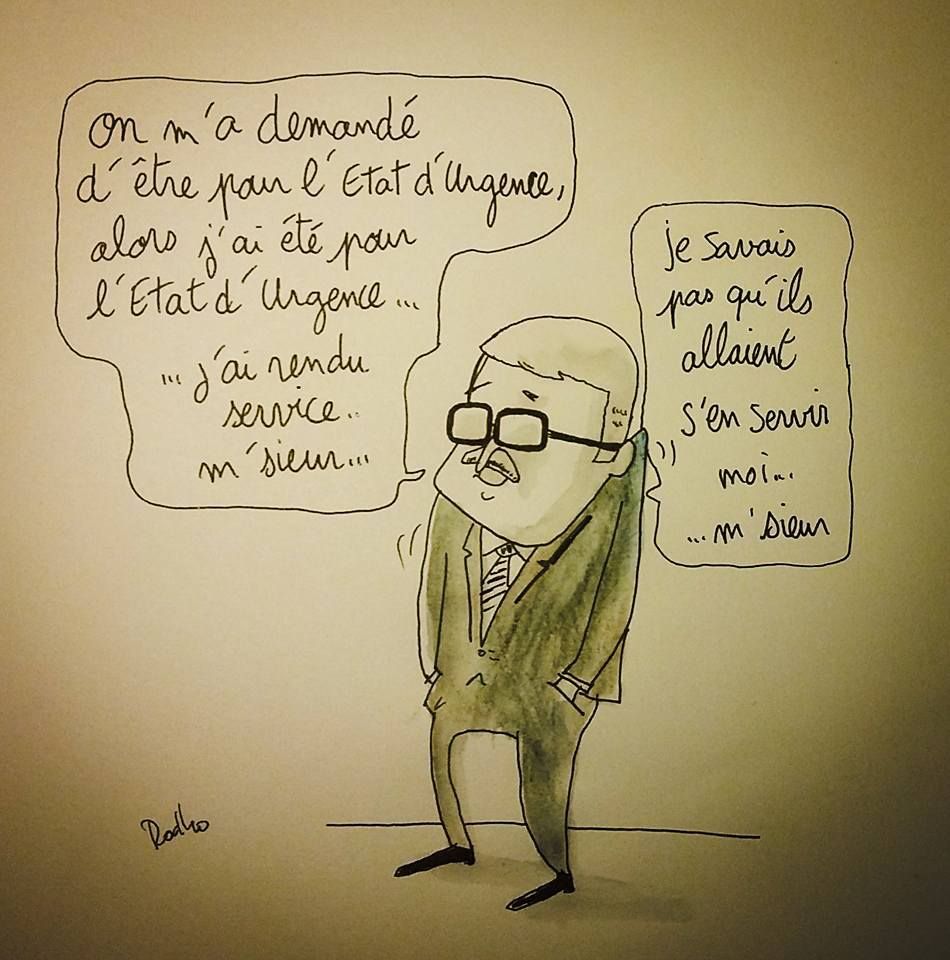 On m'a demandé
d'être pour l'Etat d'Urgence,
alors j'ai été pour
l'Etat d'Urgence...
... j'ai rendu
service..
m'sieur...
je savais
pas qu'ils
allaient
s'en servir
moi...
...m'sieur
Rodho